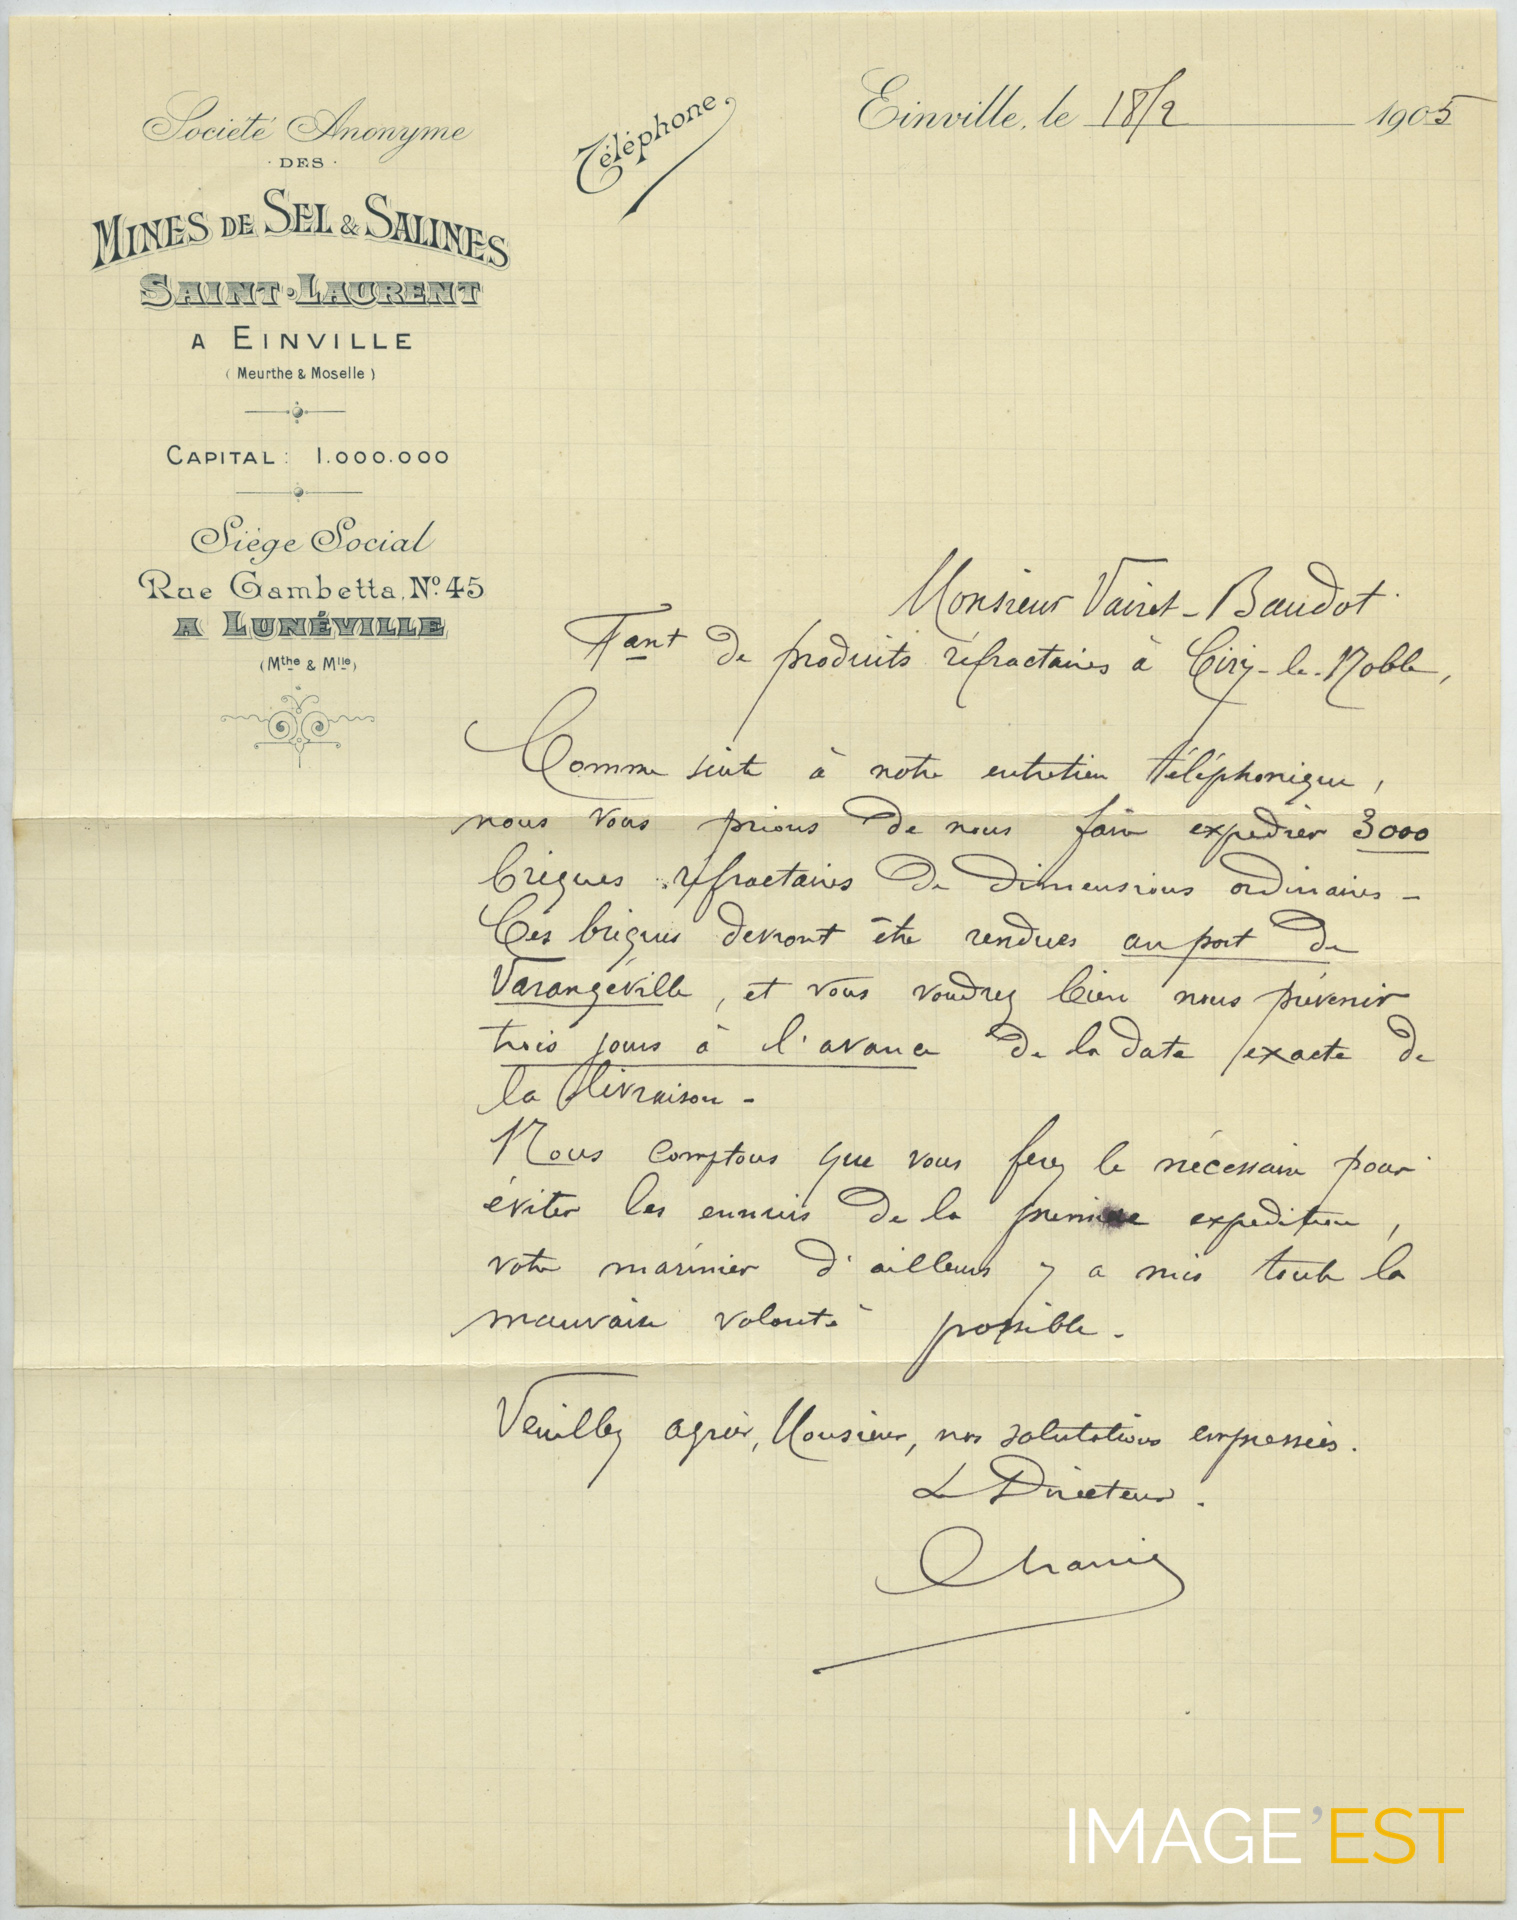 Société Anonyme
DES
MINES DE SEL & SALINES
SAINT-LAURENT
A EINVILLE
(Meurthe & Moselle)
CAPITAL: 1.000.000
Siège Social
Rue Gambetta, Nº 45
A LUNÉVILLE
(Mthe & Mlle)
Téléphone
Einville, le 18/2 1905
Monsieur Vairet-Baudot
Fant de produits réfractaires à Ciry-le-Noble,
Comme suite à notre entretien téléphonique,
nous vous prions de nous faire expédier 3000
briques réfractaires de dimensions ordinaires -
Ces briques devront être rendues au port de
Varangéville, et vous voudrez bien nous prévenir
trois jours à l'avance de la date exacte de
la livraison -
Nous comptons que vous ferez le nécessaire pour
éviter les ennuis de la première expédition,
votre marinier d'ailleurs y a mis toute la
mauvaise volonté possible -
Veuillez agréer, Monsieur, nos salutations empressées.
Le Directeur.
IMAGE'EST